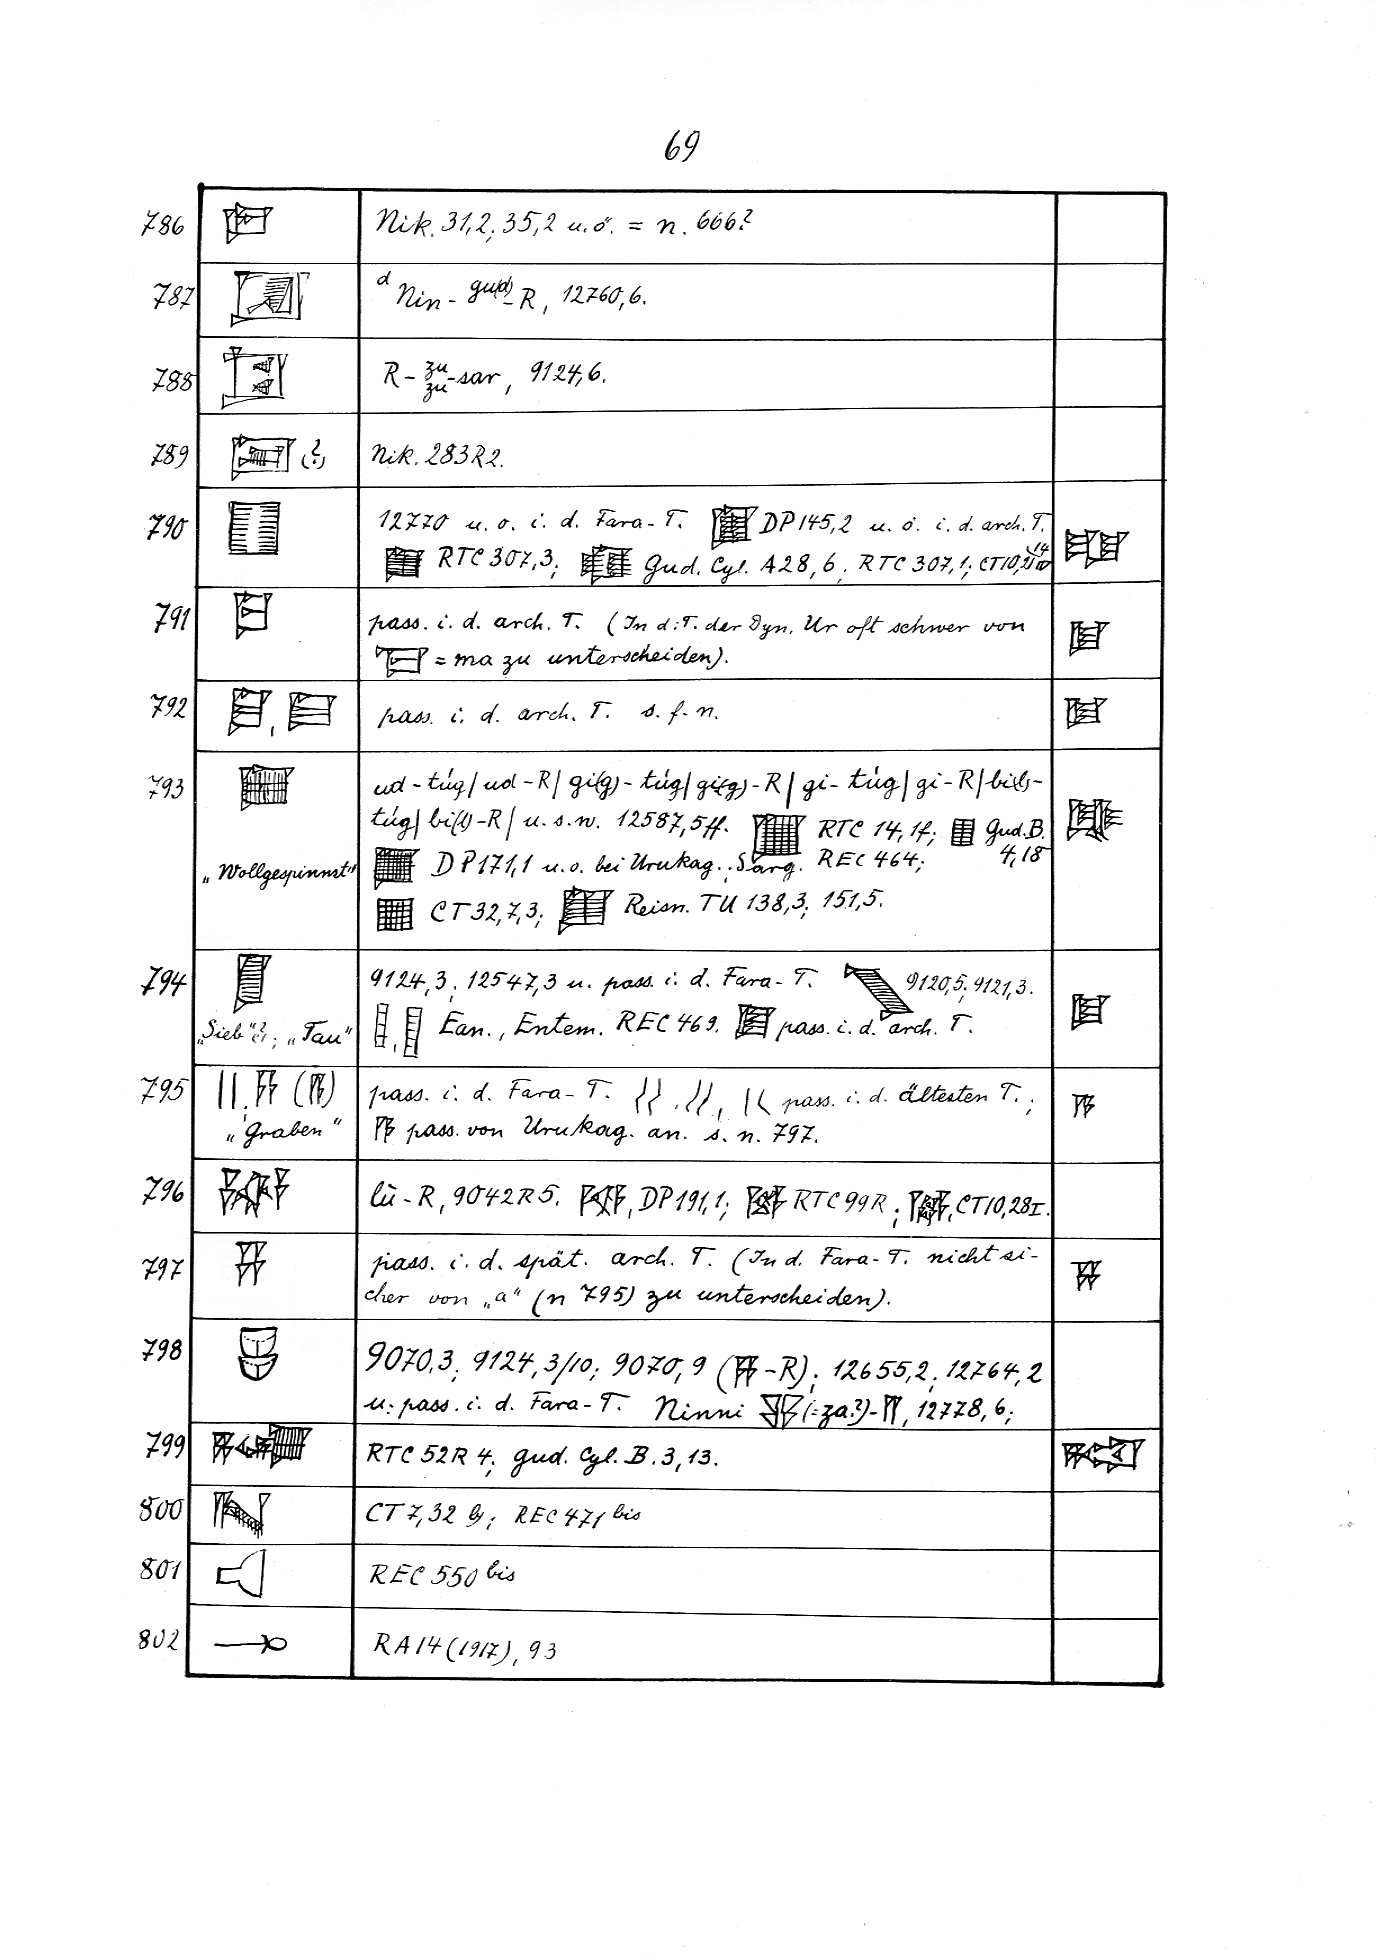 69
786 Nik. 31,2; 35,2 u. ö. = n. 666?
787 d Nin-gu(d)-R, 12760,6.
788 R-zu-sar, 9124,6.
zu
789 (?) Nik. 283R2.
790 12770 u. o. i. d. Fara-T. DP145,2 u. ö. i. d. arch. T.
RTC 307,3; Gud. Cyl. A28,6; RTC 307,1; CT10,
791 pass. i. d. arch. T. (In d. T. der Dyn. Ur oft schwer von
= ma zu unterscheiden).
792 pass. i. d. arch. T. s. f. n.
793 ud-túg/ud-R/gi(g)-túg/gi(g)-R/gi-túg/gi-R/bi(l)-
túg/bi(l)-R/u.s.w. 12587,5ff. RTC 14,1f; Gud. B. 4,18
„Wollgespinnst" DP171,1 u. o. bei Urukag.; Sarg. REC 464;
CT 32,7,3; Reisn. TU 138,3; 151,5.
794 9124,3; 12547,3 u. pass. i. d. Fara-T. 9120,5; 9121,3.
„Sieb"?; „Tau" Ean., Entem. REC 469. pass. i. d. arch. T.
795 pass. i. d. Fara-T. pass. i. d. ältesten T.;
„Graben" pass. von Urukag. an. s. n. 797.
796 lù-R, 9042R5. DP191,1; RTC 99R; CT10,28I.
797 pass. i. d. spät. arch. T. (In d. Fara-T. nicht si-
cher von „a" (n 795) zu unterscheiden).
798 9070,3; 9124,3/10; 9070,9 (-R); 12655,2; 12764,2
u. pass. i. d. Fara-T. Ninni (=za?)-, 12778,6;
799 RTC 52R4; Gud. Cyl. B. 3,13.
800 CT 7,32 b; REC 471 bis
801 REC 550 bis
802 RA14 (1917), 93